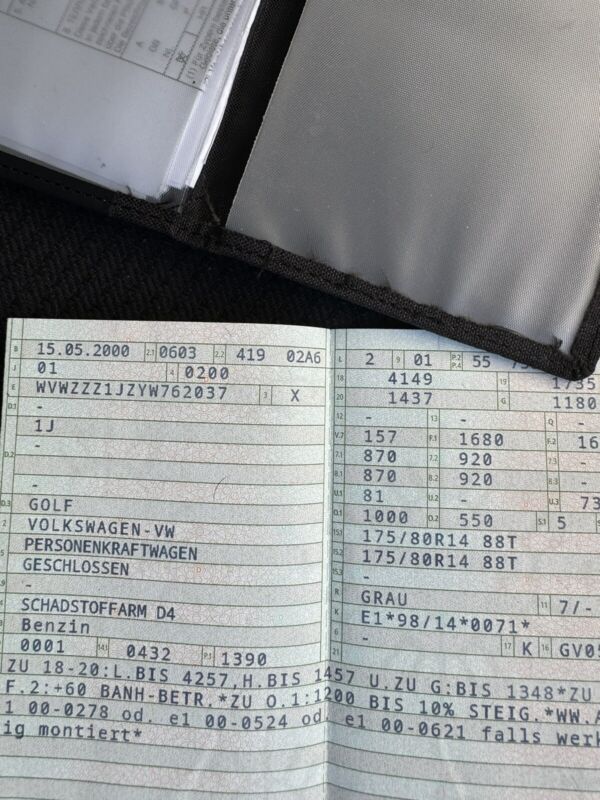 B 15.05.2000 2.1 0603 2.2 419 02A6
J 01 4 0200
E WVWZZZ1JZYW762037 3 X
D.1 -
1J
D.2 -
-
D.3 GOLF
2 VOLKSWAGEN-VW
5 PERSONENKRAFTWAGEN
GESCHLOSSEN
-
SCHADSTOFFARM D4
Benzin
0001 14.1 0432 P.1 1390
L 2 9 01 P.2 P.4 55
18 4149 19 1735
20 1437 G 1180
12 - 13 - Q -
V.7 157 F.1 1680 F.2 16
7.1 870 7.2 920 -
8.1 870 8.2 920 8.3 -
U.1 81 U.2 - U.3 73
O.1 1000 O.2 550 S.1 5
15.1 175/80R14 88T
15.2 175/80R14 88T
15.3 -
R GRAU 11 7/-
K E1*98/14*0071*
6 - 17 K 16 GV05
21
ZU 18-20:L.BIS 4257,H.BIS 1457 U.ZU G:BIS 1348*ZU
F.2:+60 BANH-BETR.*ZU O.1:1200 BIS 10% STEIG.*WW.A
1 00-0278 od. e1 00-0524 od. e1 00-0621 falls werk
ig montiert*